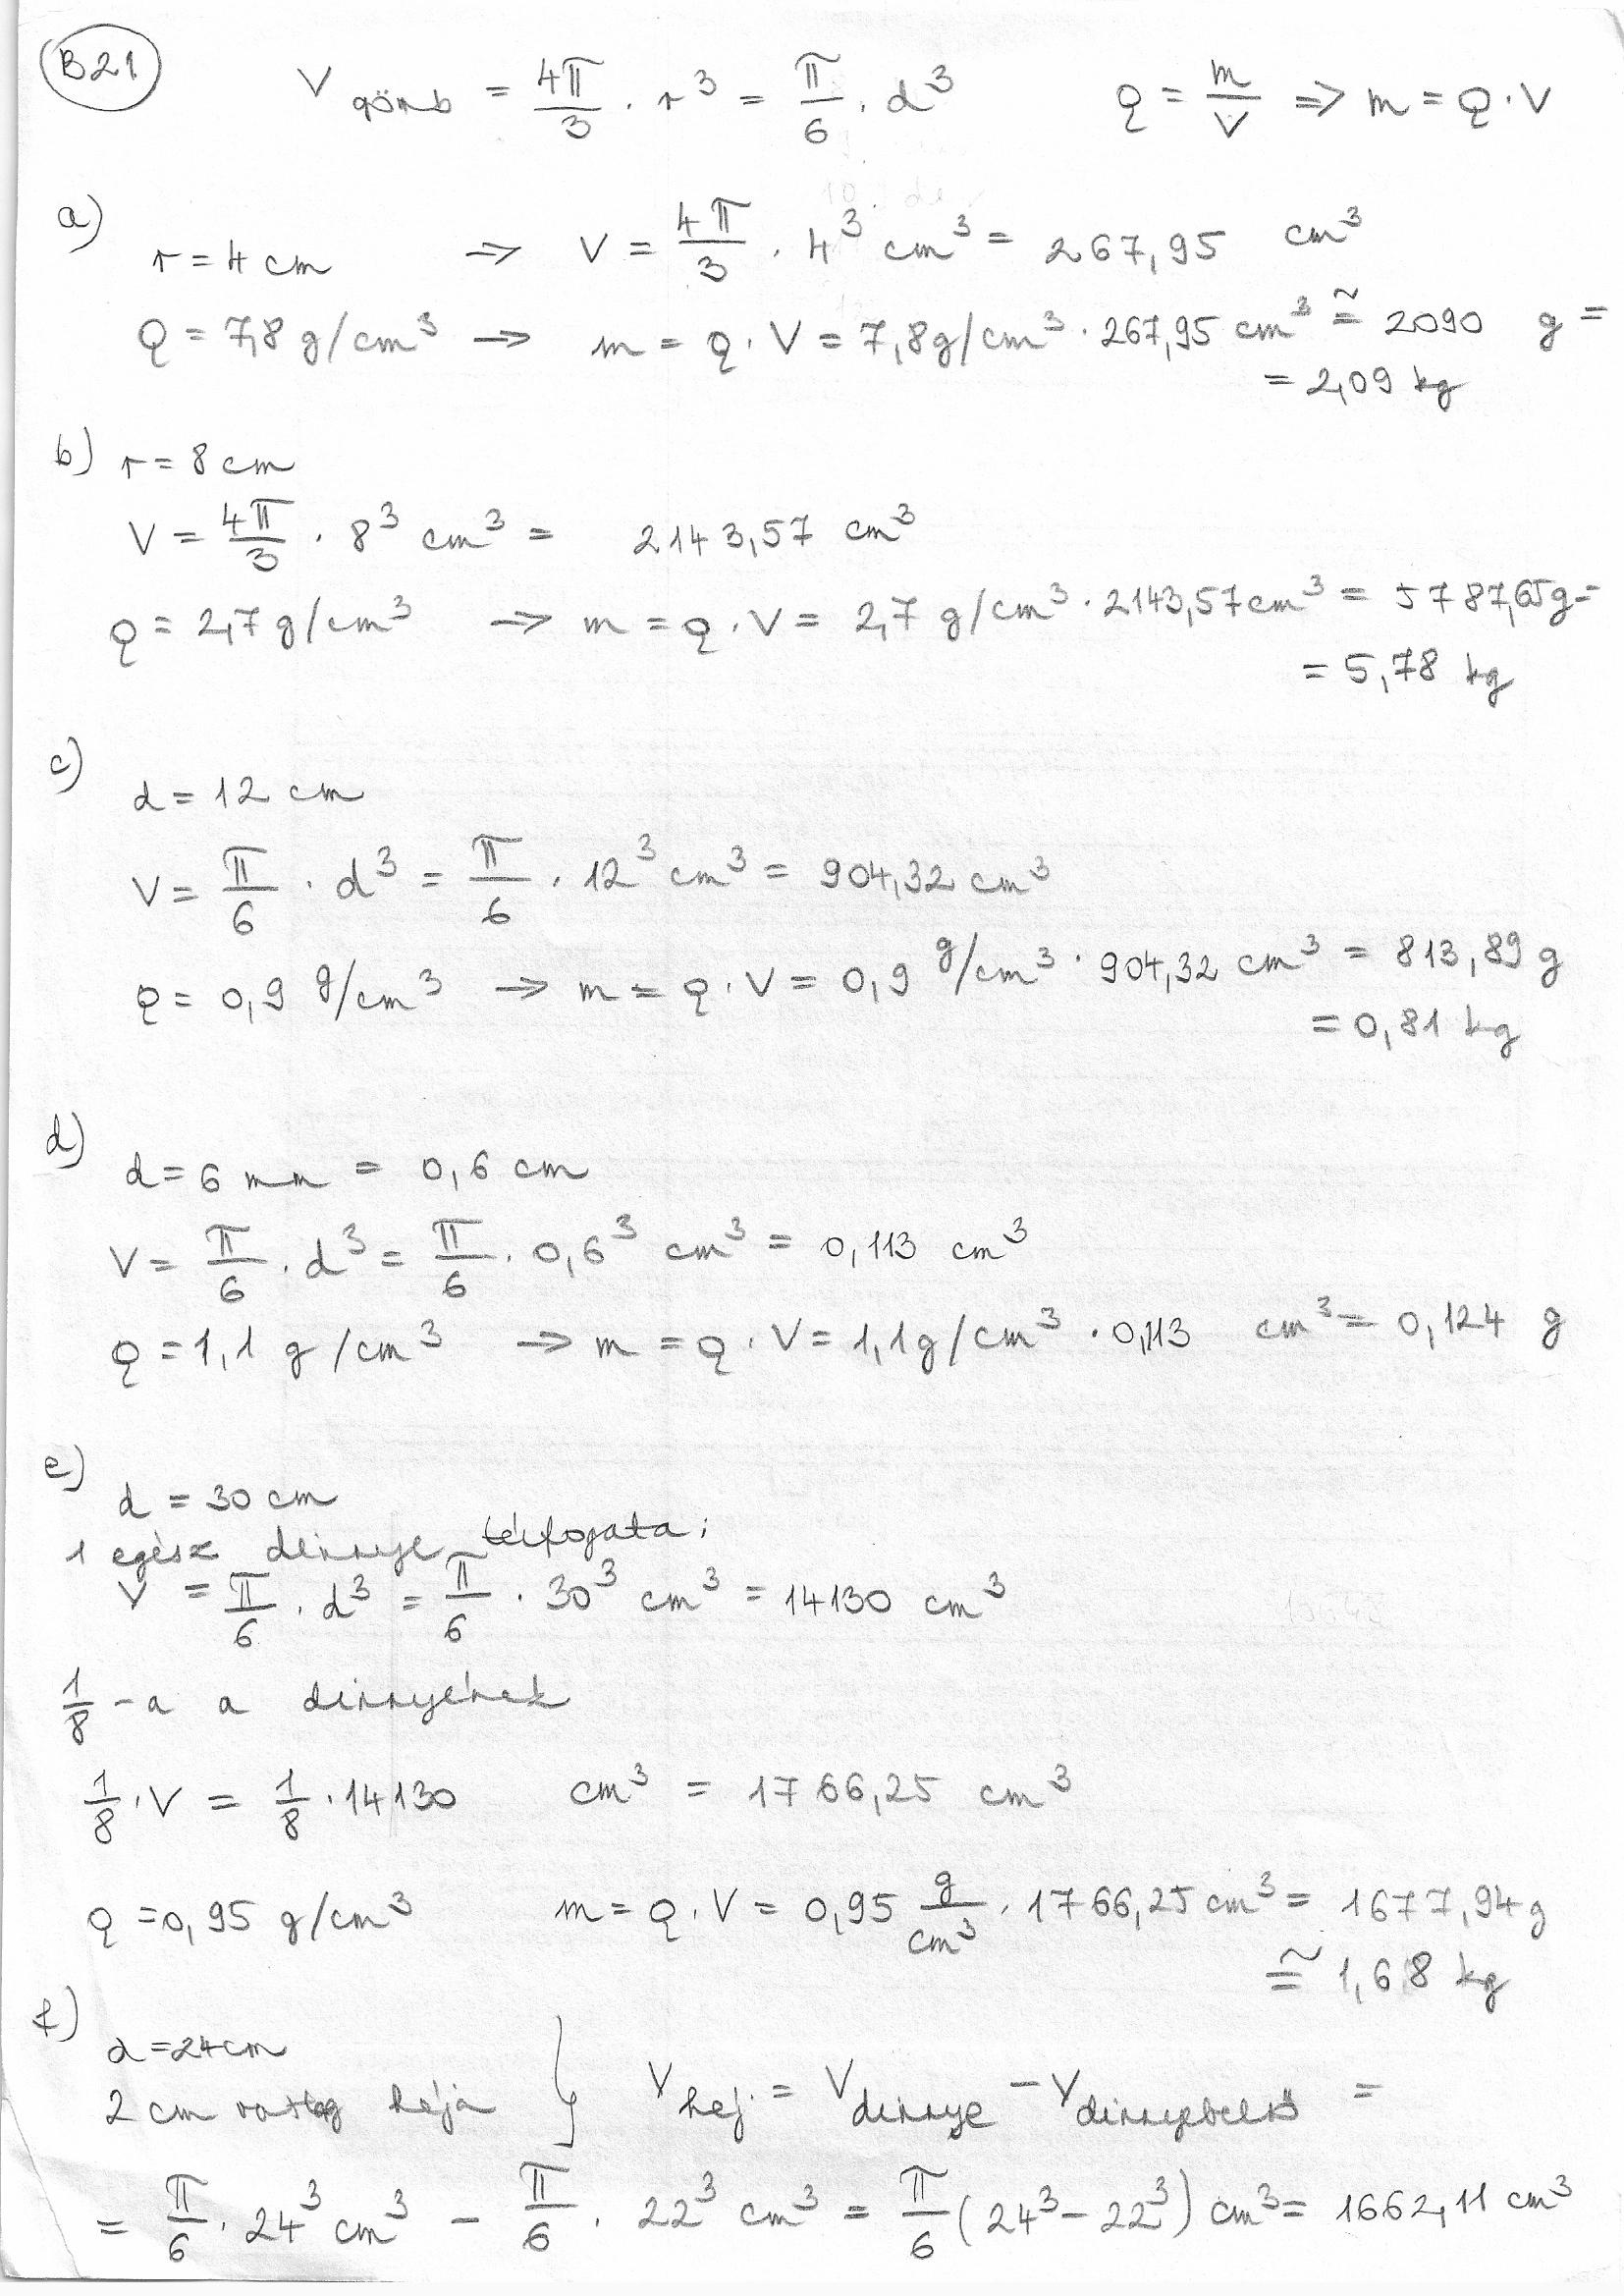 B21
V gömb = 4π/3 · r³ = π/6 · d³    ϱ = m/V => m = ϱ · V
a)
r = 4 cm => V = 4π/3 · 4³ cm³ = 267,95 cm³
ϱ = 7,8 g/cm³ → m = ϱ · V = 7,8 g/cm³ · 267,95 cm³ ≅ 2090 g =
= 2,09 kg
b) r = 8 cm
V = 4π/3 · 8³ cm³ = 2143,57 cm³
ϱ = 2,7 g/cm³ → m = ϱ · V = 2,7 g/cm³ · 2143,57 cm³ = 5787,65 g =
= 5,78 kg
c)
d = 12 cm
V = π/6 · d³ = π/6 · 12³ cm³ = 904,32 cm³
ϱ = 0,9 g/cm³ → m = ϱ · V = 0,9 g/cm³ · 904,32 cm³ = 813,89 g
= 0,81 kg
d)
d = 6 mm = 0,6 cm
V = π/6 · d³ = π/6 · 0,6³ cm³ = 0,113 cm³
ϱ = 1,1 g/cm³ → m = ϱ · V = 1,1 g/cm³ · 0,113 cm³ = 0,124 g
e)
d = 30 cm
1 egész dinnye térfogata:
V = π/6 · d³ = π/6 · 30³ cm³ = 14130 cm³
1/8 -a a dinnyének
1/8 · V = 1/8 · 14130 cm³ = 1766,25 cm³
ϱ = 0,95 g/cm³ m = ϱ · V = 0,95 g/cm³ · 1766,25 cm³ = 1677,94 g
≅ 1,68 kg
f)
d = 24 cm
2 cm vastag héja } V héj = V dinnye - V dinnyebelső =
= π/6 · 24³ cm³ - π/6 · 22³ cm³ = π/6 (24³ - 22³) cm³ = 1662,11 cm³